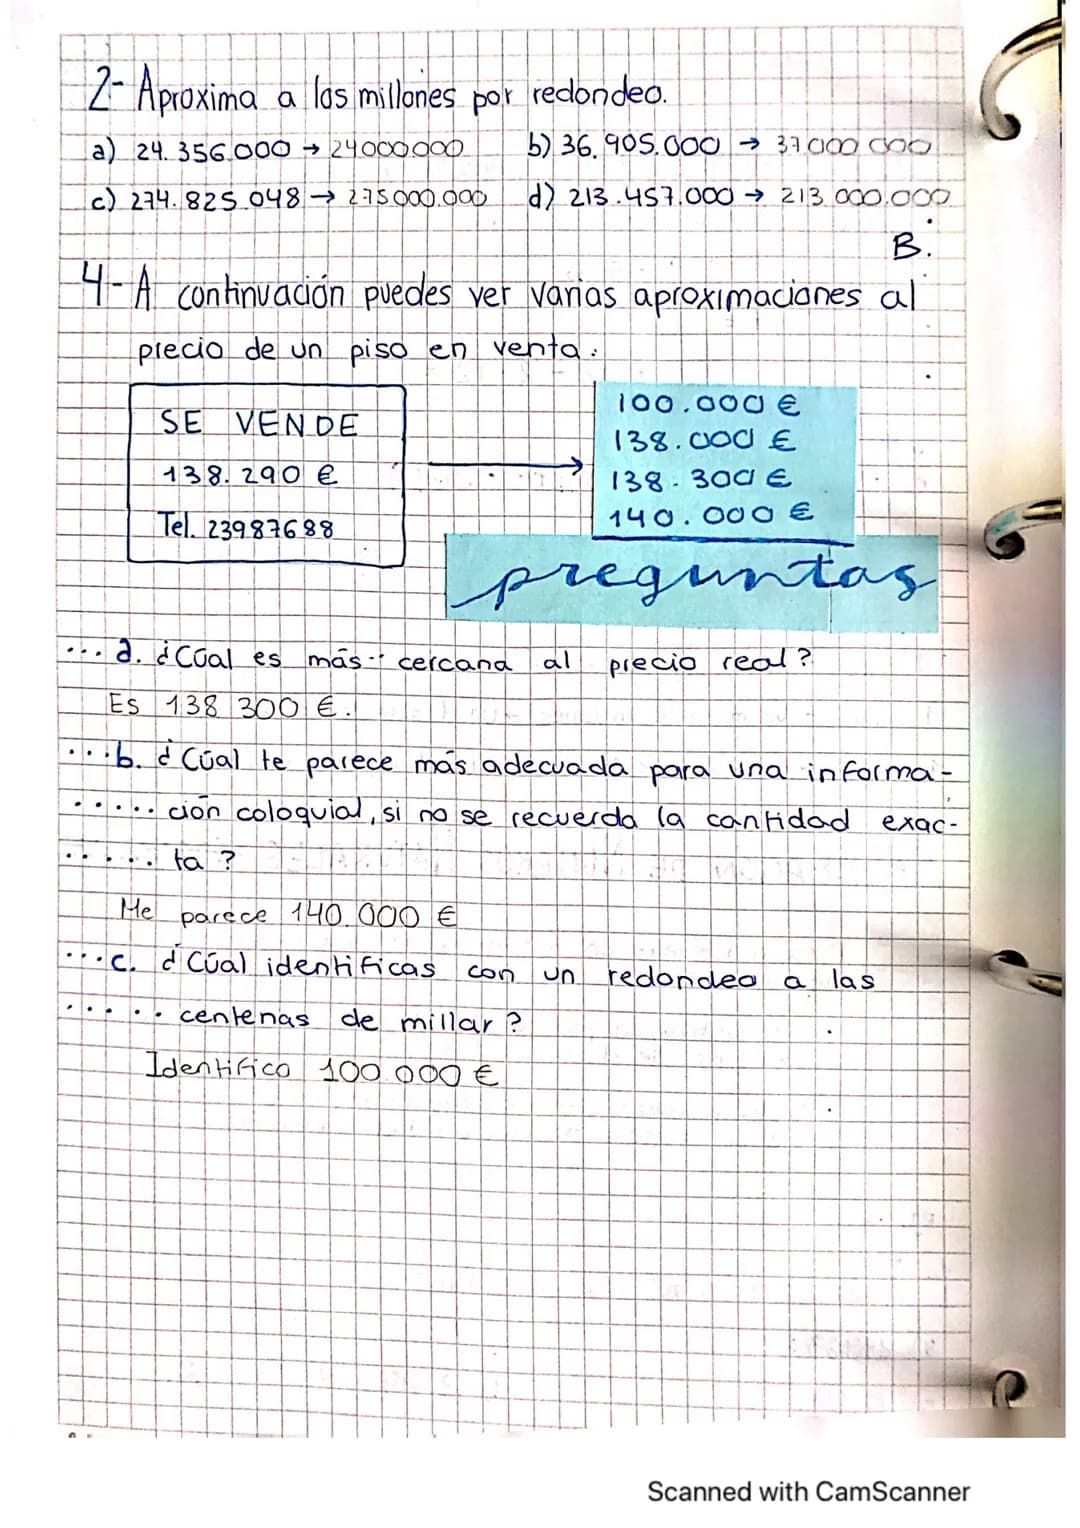 2- Aproxima a los millones por redondeo.
a) 24.356.000 → 24000000 b) 36.905.000 → 37.000 000
c) 274.825.048 → 275.000.000 d) 213.457.000 → 213.000.000
B.
4- A continuación puedes ver varias aproximaciones al
precio de un piso en venta.
SE VENDE
138.290 €
Tel. 23987688
100.000 €
138.000 €
138.300 €
140.000 €
preguntas
... a. ¿Cúal es más cercana al precio real?
Es 138 300 €.
... b. ¿Cúal te parece más adecuada para una informa-
..... ción coloquial, si no se recuerda la cantidad exac-
..... ta?
Me parece 140.000 €
... c. ¿Cúal identificas con un redondeo a las
..... centenas de millar?
Identifico 100.000 €
Scanned with CamScanner